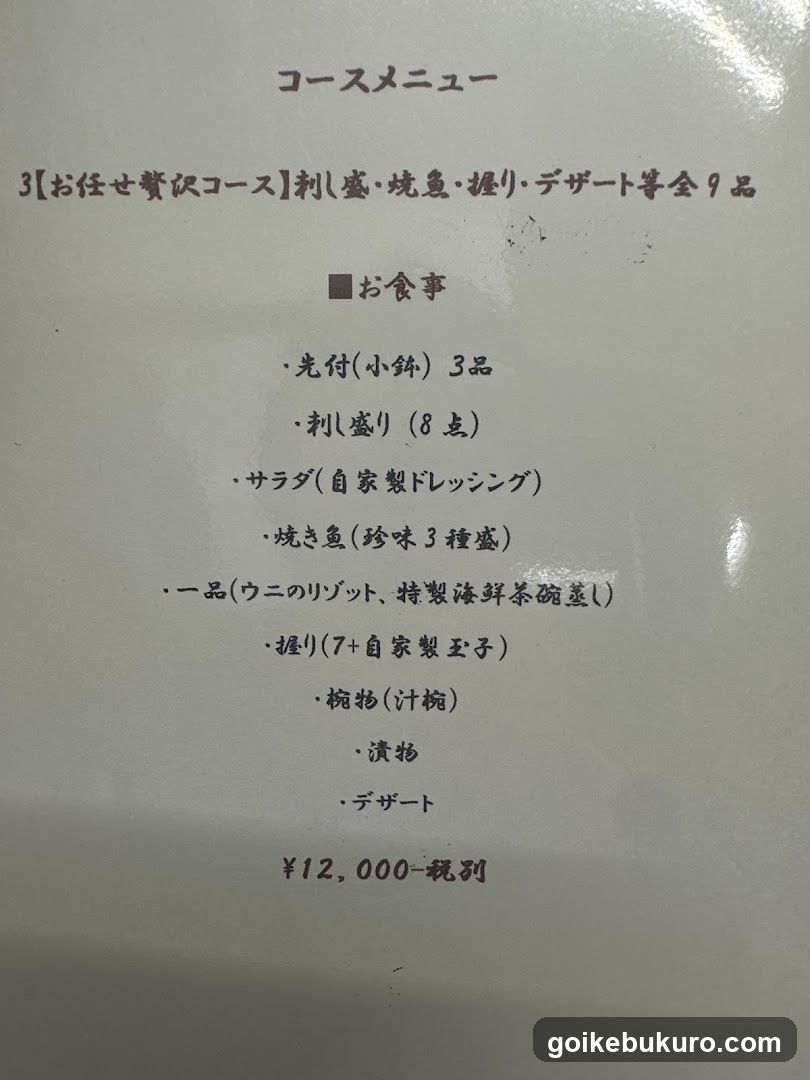 コースメニュー
3【お任せ贅沢コース】刺し盛・焼魚・握り・デザート等全9品
■お食事
・先付(小鉢) 3品
・刺し盛り (8点)
・サラダ(自家製ドレッシング)
・焼き魚(珍味3種盛)
・一品(ウニのリゾット、特製海鮮茶碗蒸し)
・握り(7+自家製玉子)
・椀物(汁椀)
・漬物
・デザート
¥12,000-税別
goikebukuro.com